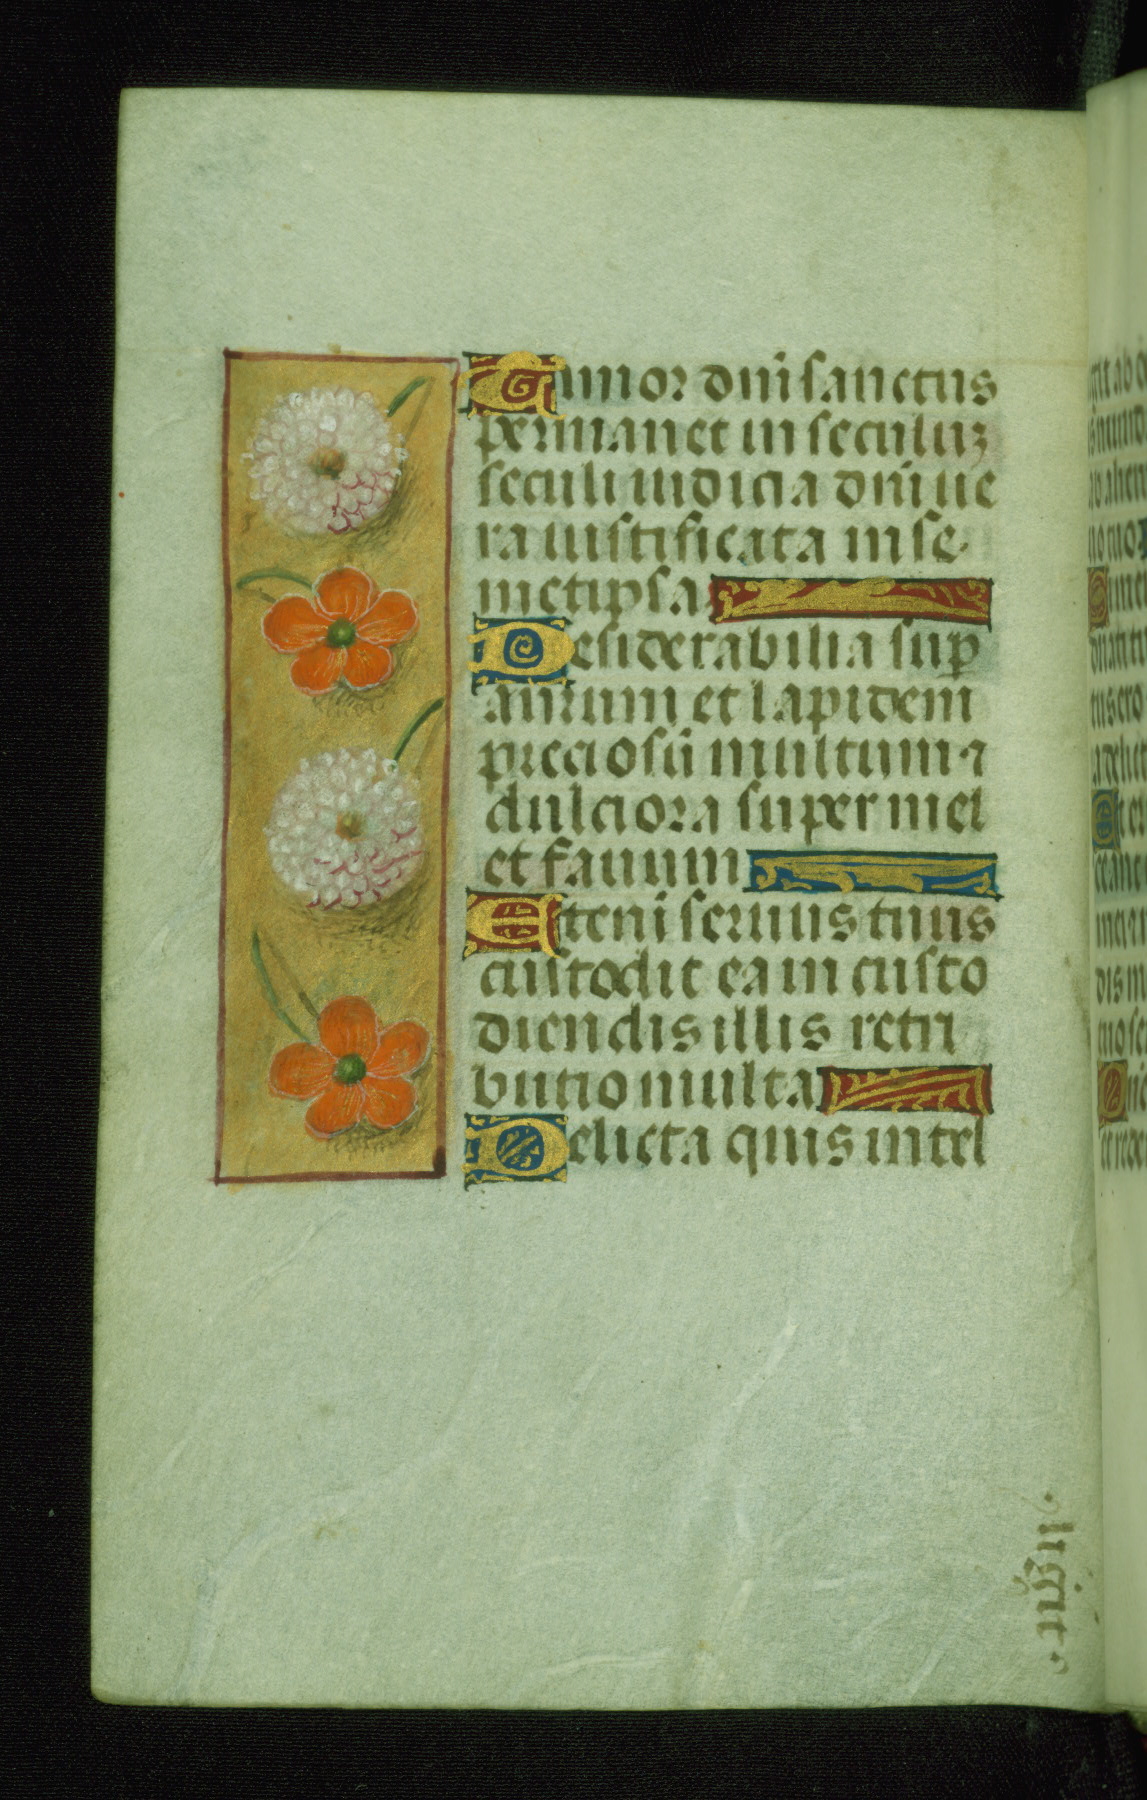 Timor dñi sanctus
permanet in seculuʒ
seculi iudicia dñi ue
ra iustificata in se
metipsa
Desiderabilia sup̱
aurum et lapidem
preciosũ multum ⁊
dulciora super mel
et fauum
Etenĩ seruus tuus
custodit ea in custo
diendis illis retri
butio multa
Delicta quis intel